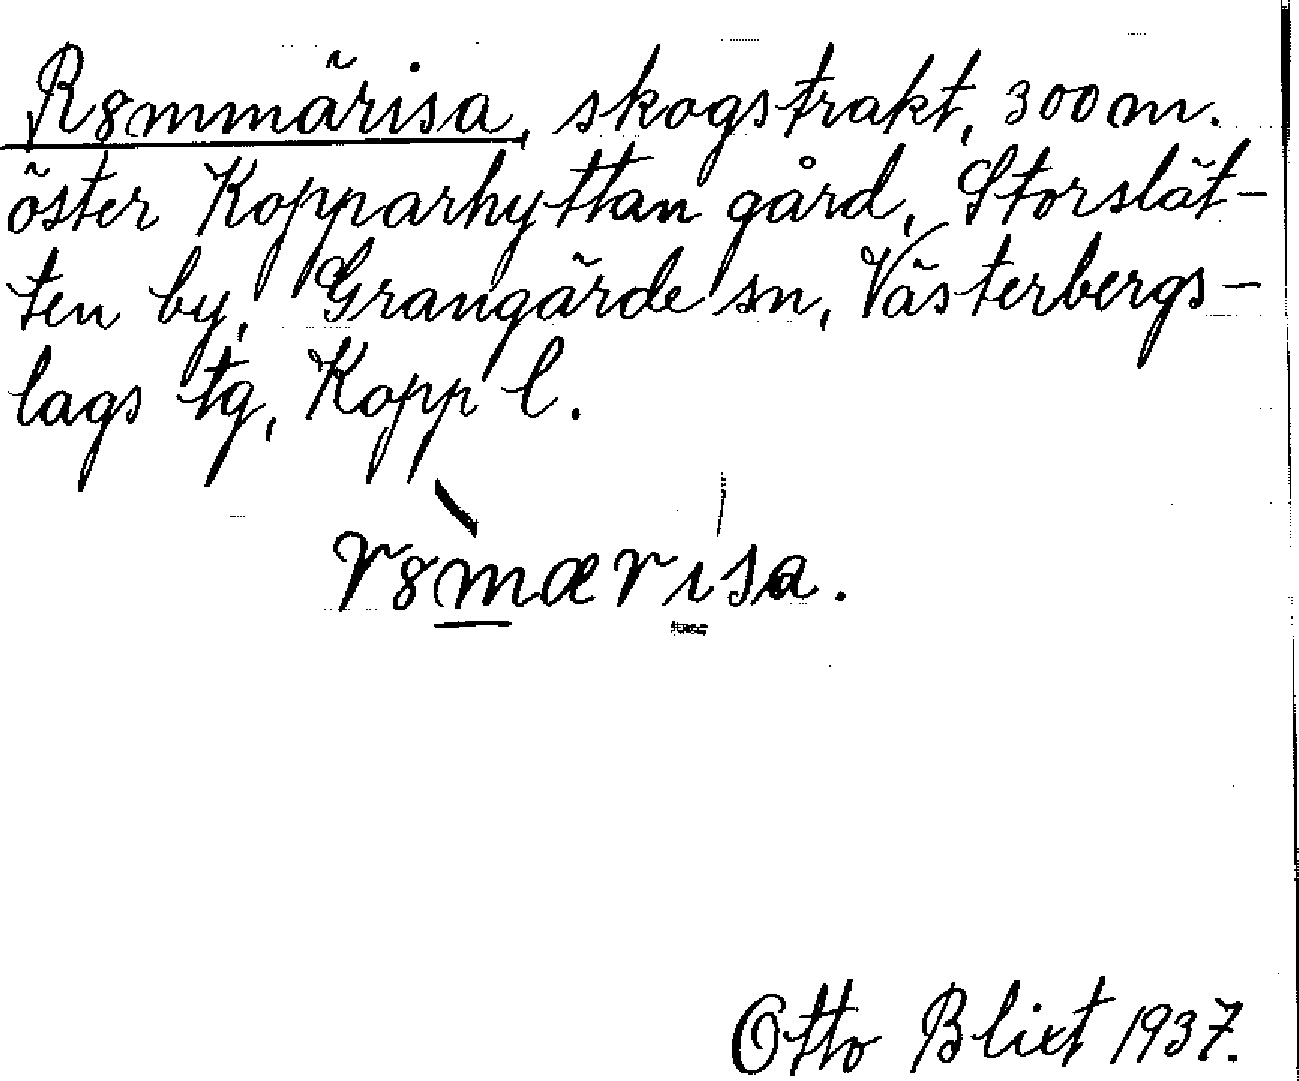 R8mmärisa, skogstrakt, 300 m.
öster Kopparhyttan gård, Storslät-
ten by, Grangärde sn, Västerbergs-
lags tg, Kopp l.
r8mærisa.
Otto Blixt 1937.